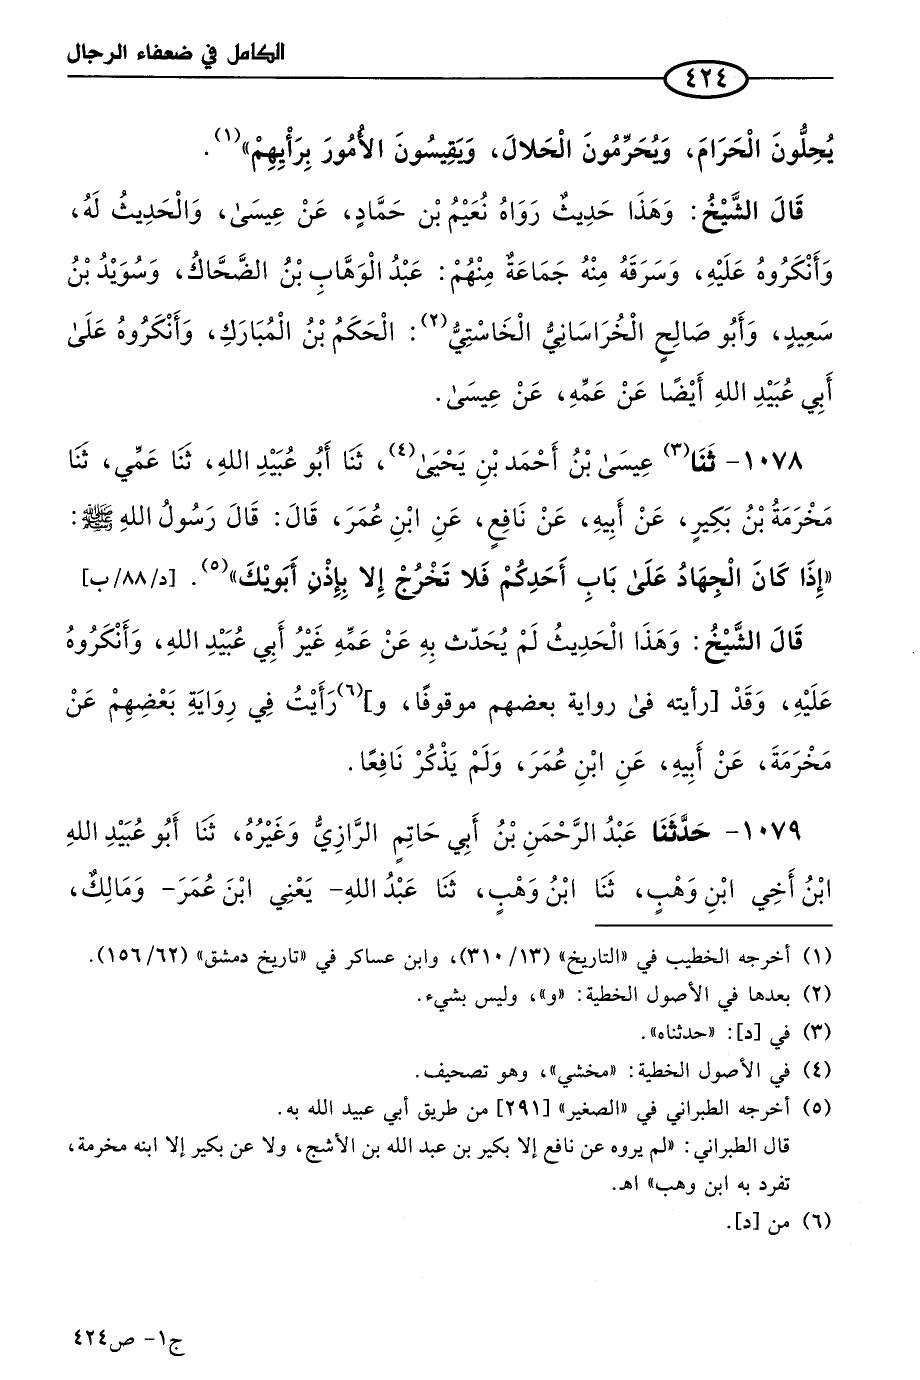 الكامل في ضعفاء الرجال
٤٢٤
يُحِلُّونَ الْحَرَامَ، وَيُحَرِّمُونَ الْحَلالَ، وَيَقِيسُونَ الأُمُورَ بِرَأْيِهِمْ»(١).
قَالَ الشَّيْخُ: وَهَذَا حَدِيثٌ رَوَاهُ نُعَيْمُ بْن حَمَّادٍ، عَنْ عِيسَىٰ، وَالْحَدِيثُ لَهُ،
وَأَنْكَرُوهُ عَلَيْهِ، وَسَرَقَهُ مِنْهُ جَمَاعَةٌ مِنْهُمْ: عَبْدُ الْوَهَّابِ بْنُ الضَّحَّاكُ، وَسُوَيْدُ بْنُ
سَعِيدٍ، وَأَبُو صَالِحٍ الْخُرَاسَانِيُّ الْخَاسْتِيُّ(٢): الْحَكَمُ بْنُ الْمُبَارَكِ، وَأَنْكَرُوهُ عَلَىٰ
أَبِي عُبَيْدِ اللهِ أَيْضًا عَنْ عَمِّهِ، عَنْ عِيسَىٰ.
١٠٧٨- ثَنَا(٣) عِيسَىٰ بْنُ أَحْمَد بْنِ يَحْيَىٰ(٤)، ثَنَا أَبُو عُبَيْدِ اللهِ، ثَنَا عَمِّي، ثَنَا
مَخْرَمَةُ بْنُ بَكِيرٍ، عَنْ أَبِيهِ، عَنْ نَافِعٍ، عَنِ ابْنِ عُمَرَ، قَالَ: قَالَ رَسُولُ اللهِ ﷺ:
«إِذَا كَانَ الْجِهَادُ عَلَىٰ بَابِ أَحَدِكُمْ فَلا تَخْرُجْ إِلا بِإِذْنِ أَبَوَيْكَ»(٥). [د/٨٨/ب]
قَالَ الشَّيْخُ: وَهَذَا الْحَدِيثُ لَمْ يُحَدّث بِهِ عَنْ عَمِّهِ غَيْرُ أَبِي عُبَيْدِ اللهِ، وَأَنْكَرُوهُ
عَلَيْهِ، وَقَدْ [رأيته فى رواية بعضهم موقوفًا، و](٦)رَأَيْتُ فِي رِوَايَةِ بَعْضِهِمْ عَنْ
مَخْرَمَةَ، عَنْ أَبِيهِ، عَنِ ابْنِ عُمَرَ، وَلَمْ يَذْكُرْ نَافِعًا.
١٠٧٩- حَدَّثَنَا عَبْدُ الرَّحْمَنِ بْنُ أَبِي حَاتِمٍ الرَّازِيُّ وَغَيْرُهُ، ثَنَا أَبُو عُبَيْدِ اللهِ
ابْنُ أَخِي ابْنِ وَهْبٍ، ثَنَا ابْنُ وَهْبٍ، ثَنَا عَبْدُ اللهِ- يَعْنِي ابْنَ عُمَرَ- وَمَالِكٌ،
(١) أخرجه الخطيب في «التاريخ» (٣١٠/١٣)، وابن عساكر في «تاريخ دمشق» (١٥٦/٦٢).
(٢) بعدها في الأصول الخطية: «و»، وليس بشيء.
(٣) في [د]: «حدثناه».
(٤) في الأصول الخطية: «مخشي»، وهو تصحيف.
(٥) أخرجه الطبراني في «الصغير» [٢٩١] من طريق أبي عبيد الله به.
قال الطبراني: «لم يروه عن نافع إلا بكير بن عبد الله بن الأشج، ولا عن بكير إلا ابنه مخرمة،
تفرد به ابن وهب» اهـ.
(٦) من [د].
ج١- ص٤٢٤